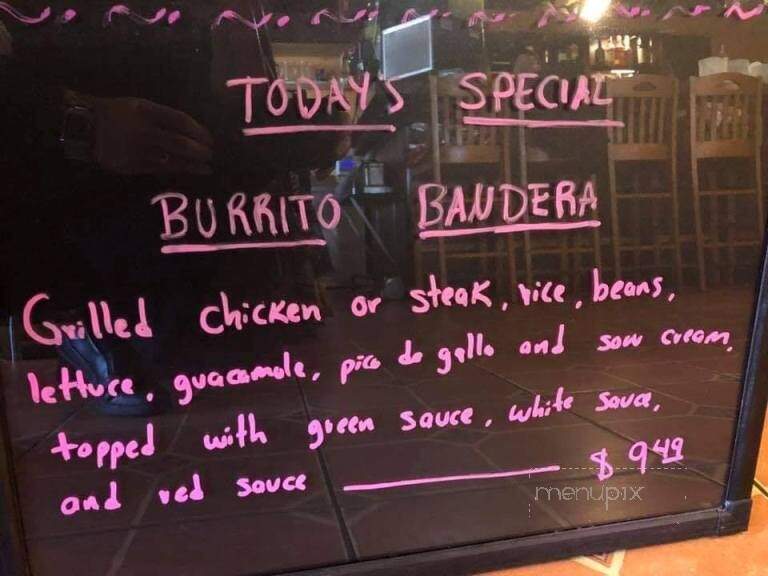 TODAYS SPECIAL
BURRITO BANDERA
Grilled chicken or steak, rice, beans,
lettuce, guacamole, pico de gallo and sour cream,
topped with green sauce, white sauce,
and red sauce $ 9.49
menupix